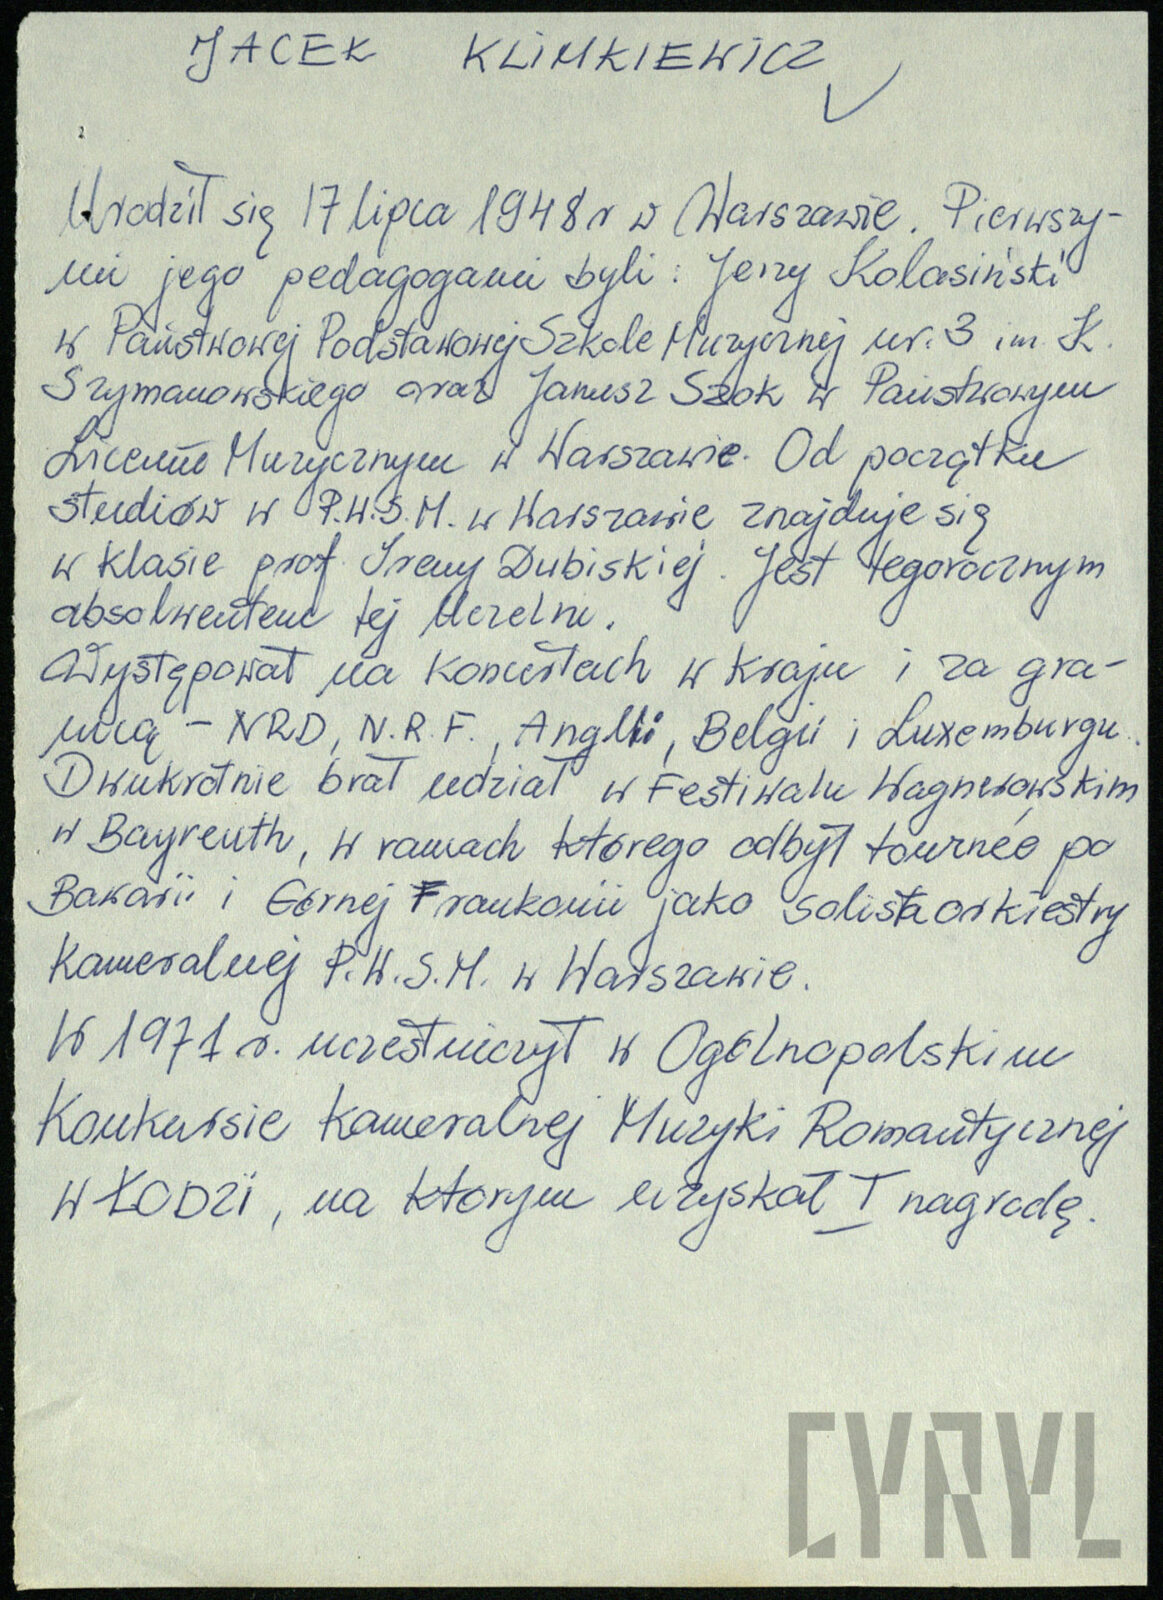 JACEK KLIMKIEWICZ
Urodził się 17 lipca 1948 r w Warszawie. Pierwszy-
mi jego pedagogami byli: Jerzy Kolasiński
w Państwowej Podstawowej Szkole Muzycznej nr. 3 im. K.
Szymanowskiego oraz Janusz Szok w Państwowym
Liceum Muzycznym w Warszawie. Od początku
studiów w P.W.S.M. w Warszawie znajduje się
w klasie prof. Ireny Dubiskiej. Jest tegorocznym
absolwentem tej Uczelni.
Występował na koncertach w kraju i za gra-
nicą - NRD, N.R.F., Anglii, Belgii i Luxemburgu.
Dwukrotnie brał udział w Festiwalu Wagnerowskim
w Bayreuth, w ramach którego odbył tournée po
Bawarii i Górnej Frankonii jako solista orkiestry
Kameralnej P.W.S.M. w Warszawie.
W 1971 r. uczestniczył w Ogólnopolskim
Konkursie Kameralnej Muzyki Romantycznej
w ŁODZI, na którym uzyskał I nagrodę.
CYRYL